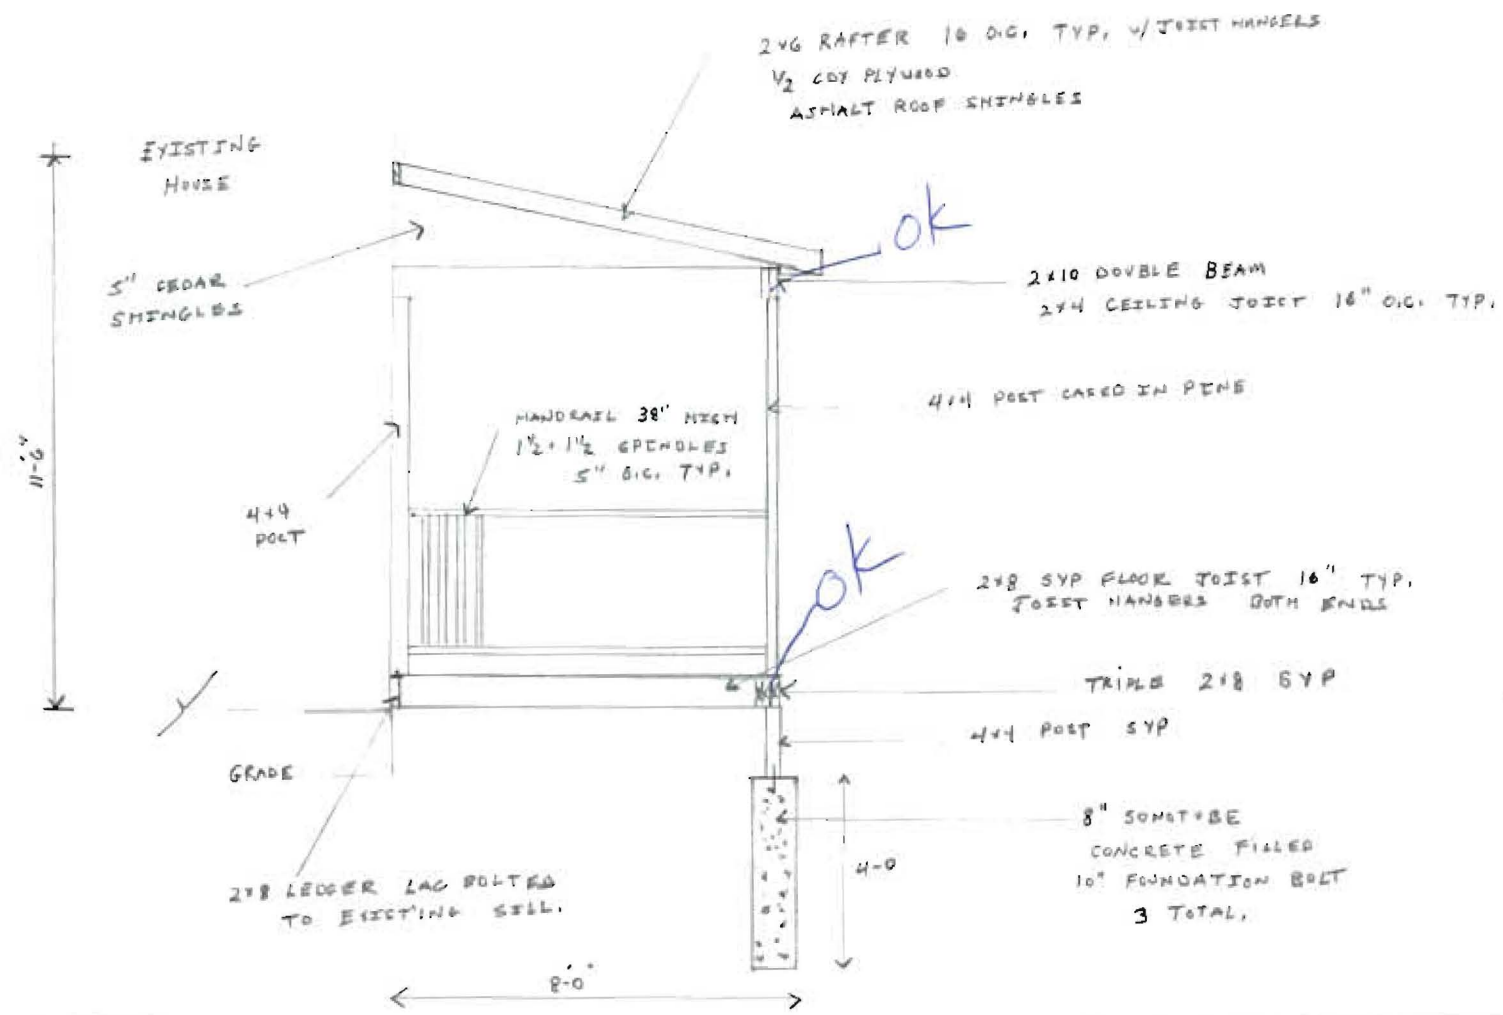 2x6 RAFTER 16 O.C. TYP. w/ JOIST HANGERS
1/2 CDX PLYWOOD
ASPHALT ROOF SHINGLES
EXISTING
HOUSE
OK
5" CEDAR
SHINGLES
2x10 DOUBLE BEAM
2x4 CEILING JOIST 16" O.C. TYP.
4x4 POST CASED IN PINE
HANDRAIL 38" HIGH
1 1/2 x 1 1/2 SPINDLES
5" O.C. TYP.
11'-6"
4x4
POST
OK
2x8 SYP FLOOR JOIST 16" TYP.
JOIST HANGERS BOTH ENDS
TRIPLE 2x8 SYP
4x4 POST SYP
GRADE
8" SONOTUBE
CONCRETE FILLED
10" FOUNDATION BOLT
3 TOTAL.
4-0
2x8 LEDGER LAG BOLTED
TO EXISTING SILL.
8'-0"